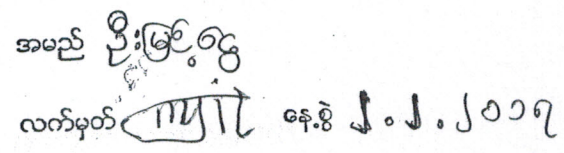 အမည် ဦးမြင့်ငွေ
လက်မှတ် နေ့စွဲ ၂.၂.၂၀၁၇